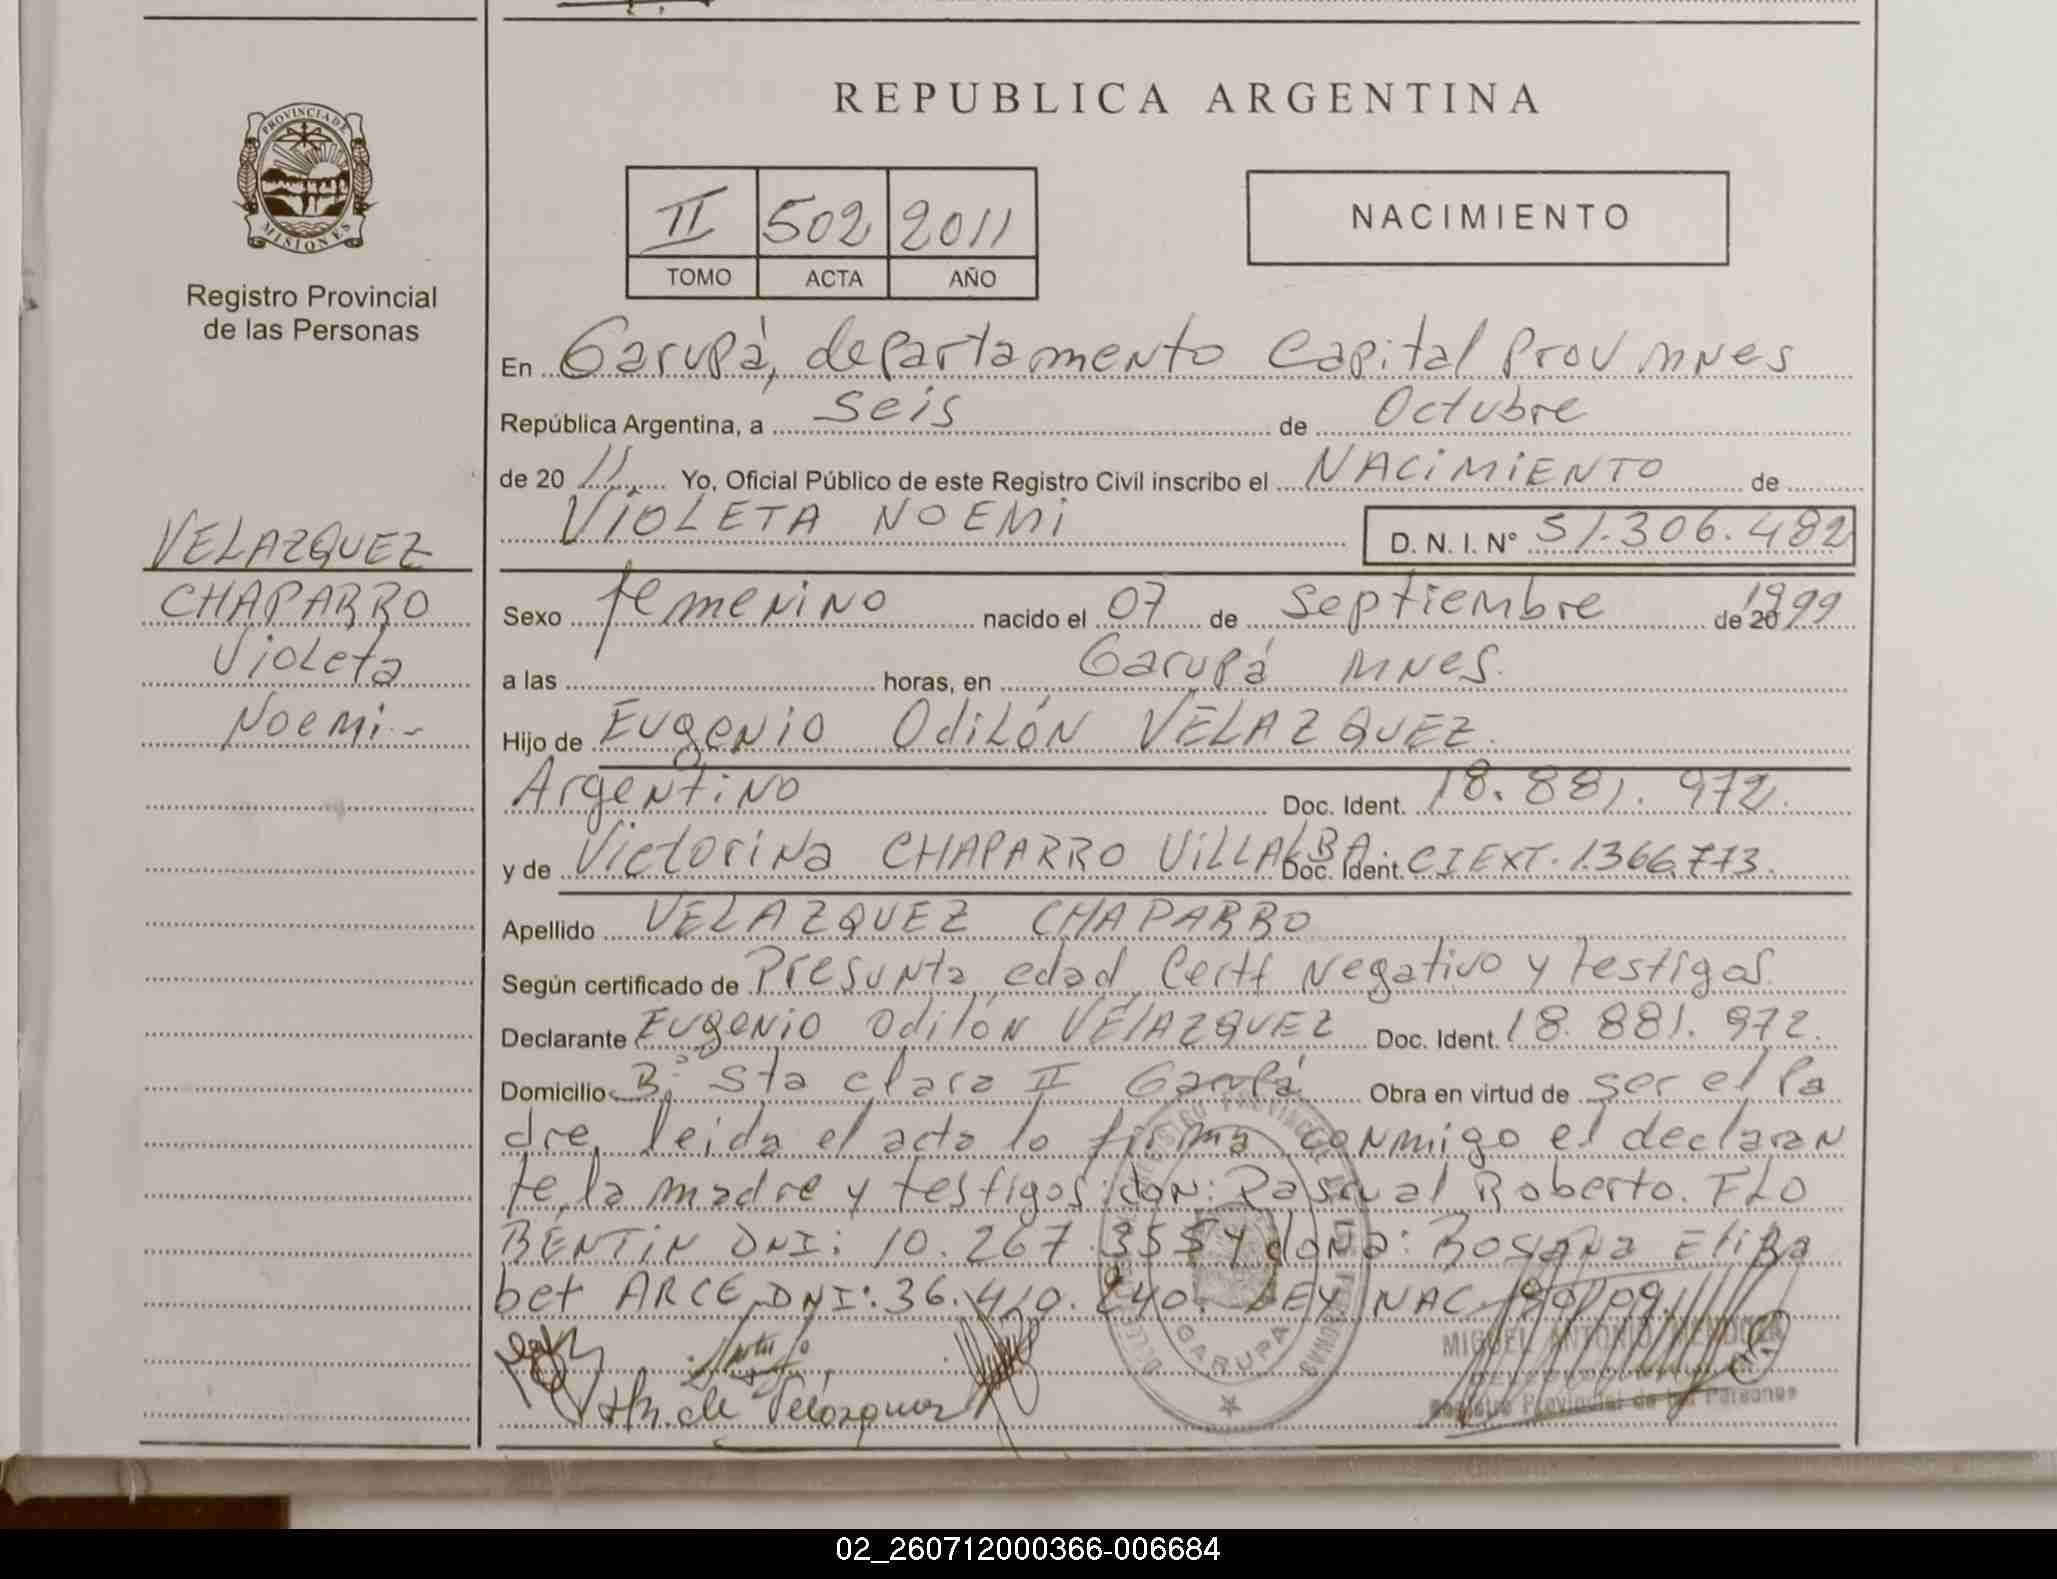 REPUBLICA ARGENTINA
PROVINCIA DE
MISIONES
Registro Provincial
de las Personas
II 502 2011
TOMO ACTA AÑO
NACIMIENTO
En Garupá, departamento Capital Prov Mnes
República Argentina, a seis de Octubre
de 20 11 Yo, Oficial Público de este Registro Civil inscribo el NACIMIENTO de
VIOLETA NOEMI D. N. I. N° 51.306.482
VELAZQUEZ
CHAPARRO
Violeta
Noemi.-
Sexo femenino nacido el 07 de Septiembre de 20 1999
a las horas, en Garupá Mnes.
Hijo de Eugenio Odilón VELAZQUEZ.
Argentino Doc. Ident. 18.881.972.
y de Victorina CHAPARRO VILLALBA. Doc. Ident. CI EXT. 1.366.773.
Apellido VELAZQUEZ CHAPARRO
Según certificado de Presunta edad, Certf Negativo y testigos.
Declarante Eugenio Odilón VELAZQUEZ Doc. Ident. 18.881.972.
Domicilio B° Sta clara II Garupá Obra en virtud de ser el Pa
dre, leida el acta lo firma conmigo el declaran
te, la madre y testigos: don: Pascual Roberto. FLO
BENTIN DNI: 10.267.355 y doña: Rosana Eliza
bet ARCE DNI: 36.410.240. LEY NAC.
GARUPA
MIGUEL ANTONIO
Registro Provincial de las Personas
de Velázquez
02_260712000366-006684